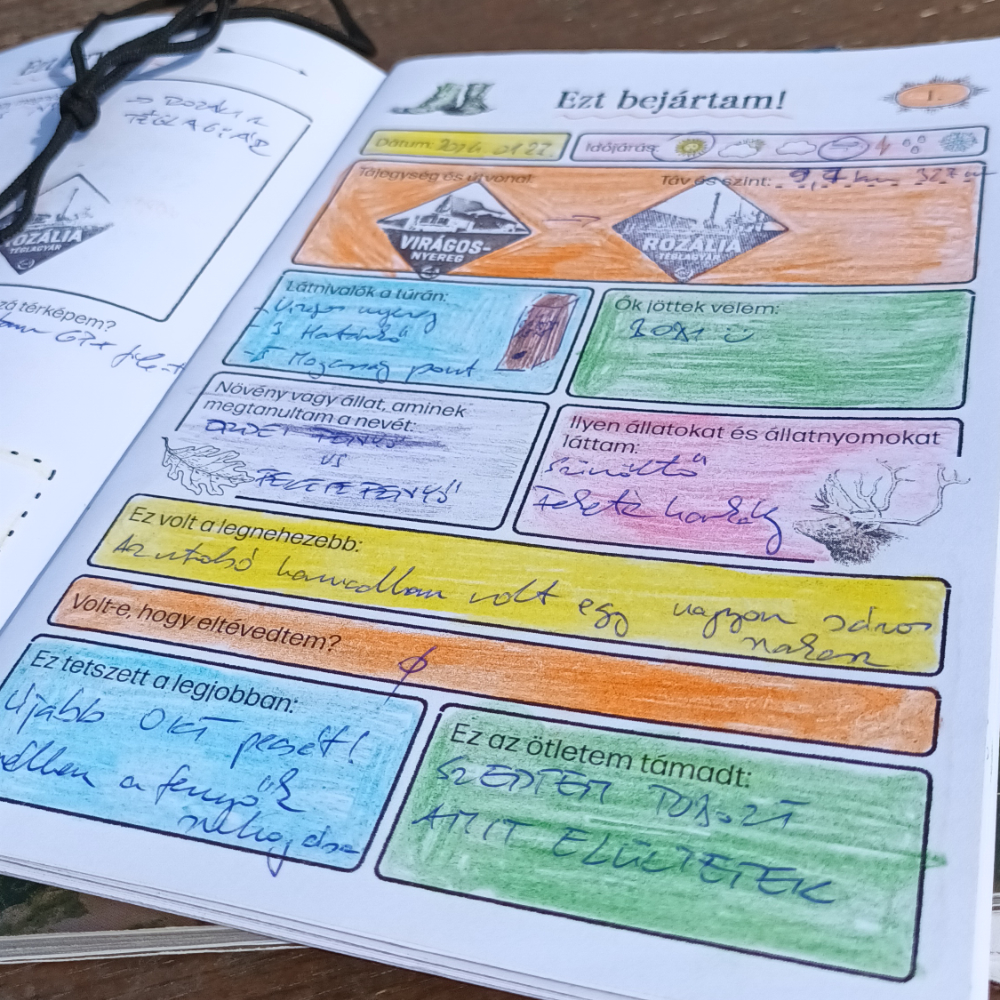 → ROZÁLIA
TÉGLAGYÁR
ROZÁLIA
TÉGLAGYÁR
térképem?
GPX
Ezt bejártam!
1.
Dátum:
Időjárás:
Tájegység és útvonal:
Táv és szint: 9,7 km 327 m
VIRÁGOS-
NYEREG
→
ROZÁLIA
TÉGLAGYÁR
Látnivalók a túrán:
- 3 Határkő
pont
Ők jöttek velem:
Növény vagy állat, aminek
megtanultam a nevét:
ERDEI FENYŐ
VS
FEKETE FENYŐ
Ilyen állatokat és állatnyomokat
láttam:
Fekete harkály
Ez volt a legnehezebb:
Az utolsó harmadban volt egy nagyon sáros
szakasz
Volt-e, hogy eltévedtem?
Ez tetszett a legjobban:
Újabb OKT pecsét!
a fenyők
Ez az ötletem támadt:
SZEDTEM TOBOZT
AMIT ELÜLTETEK